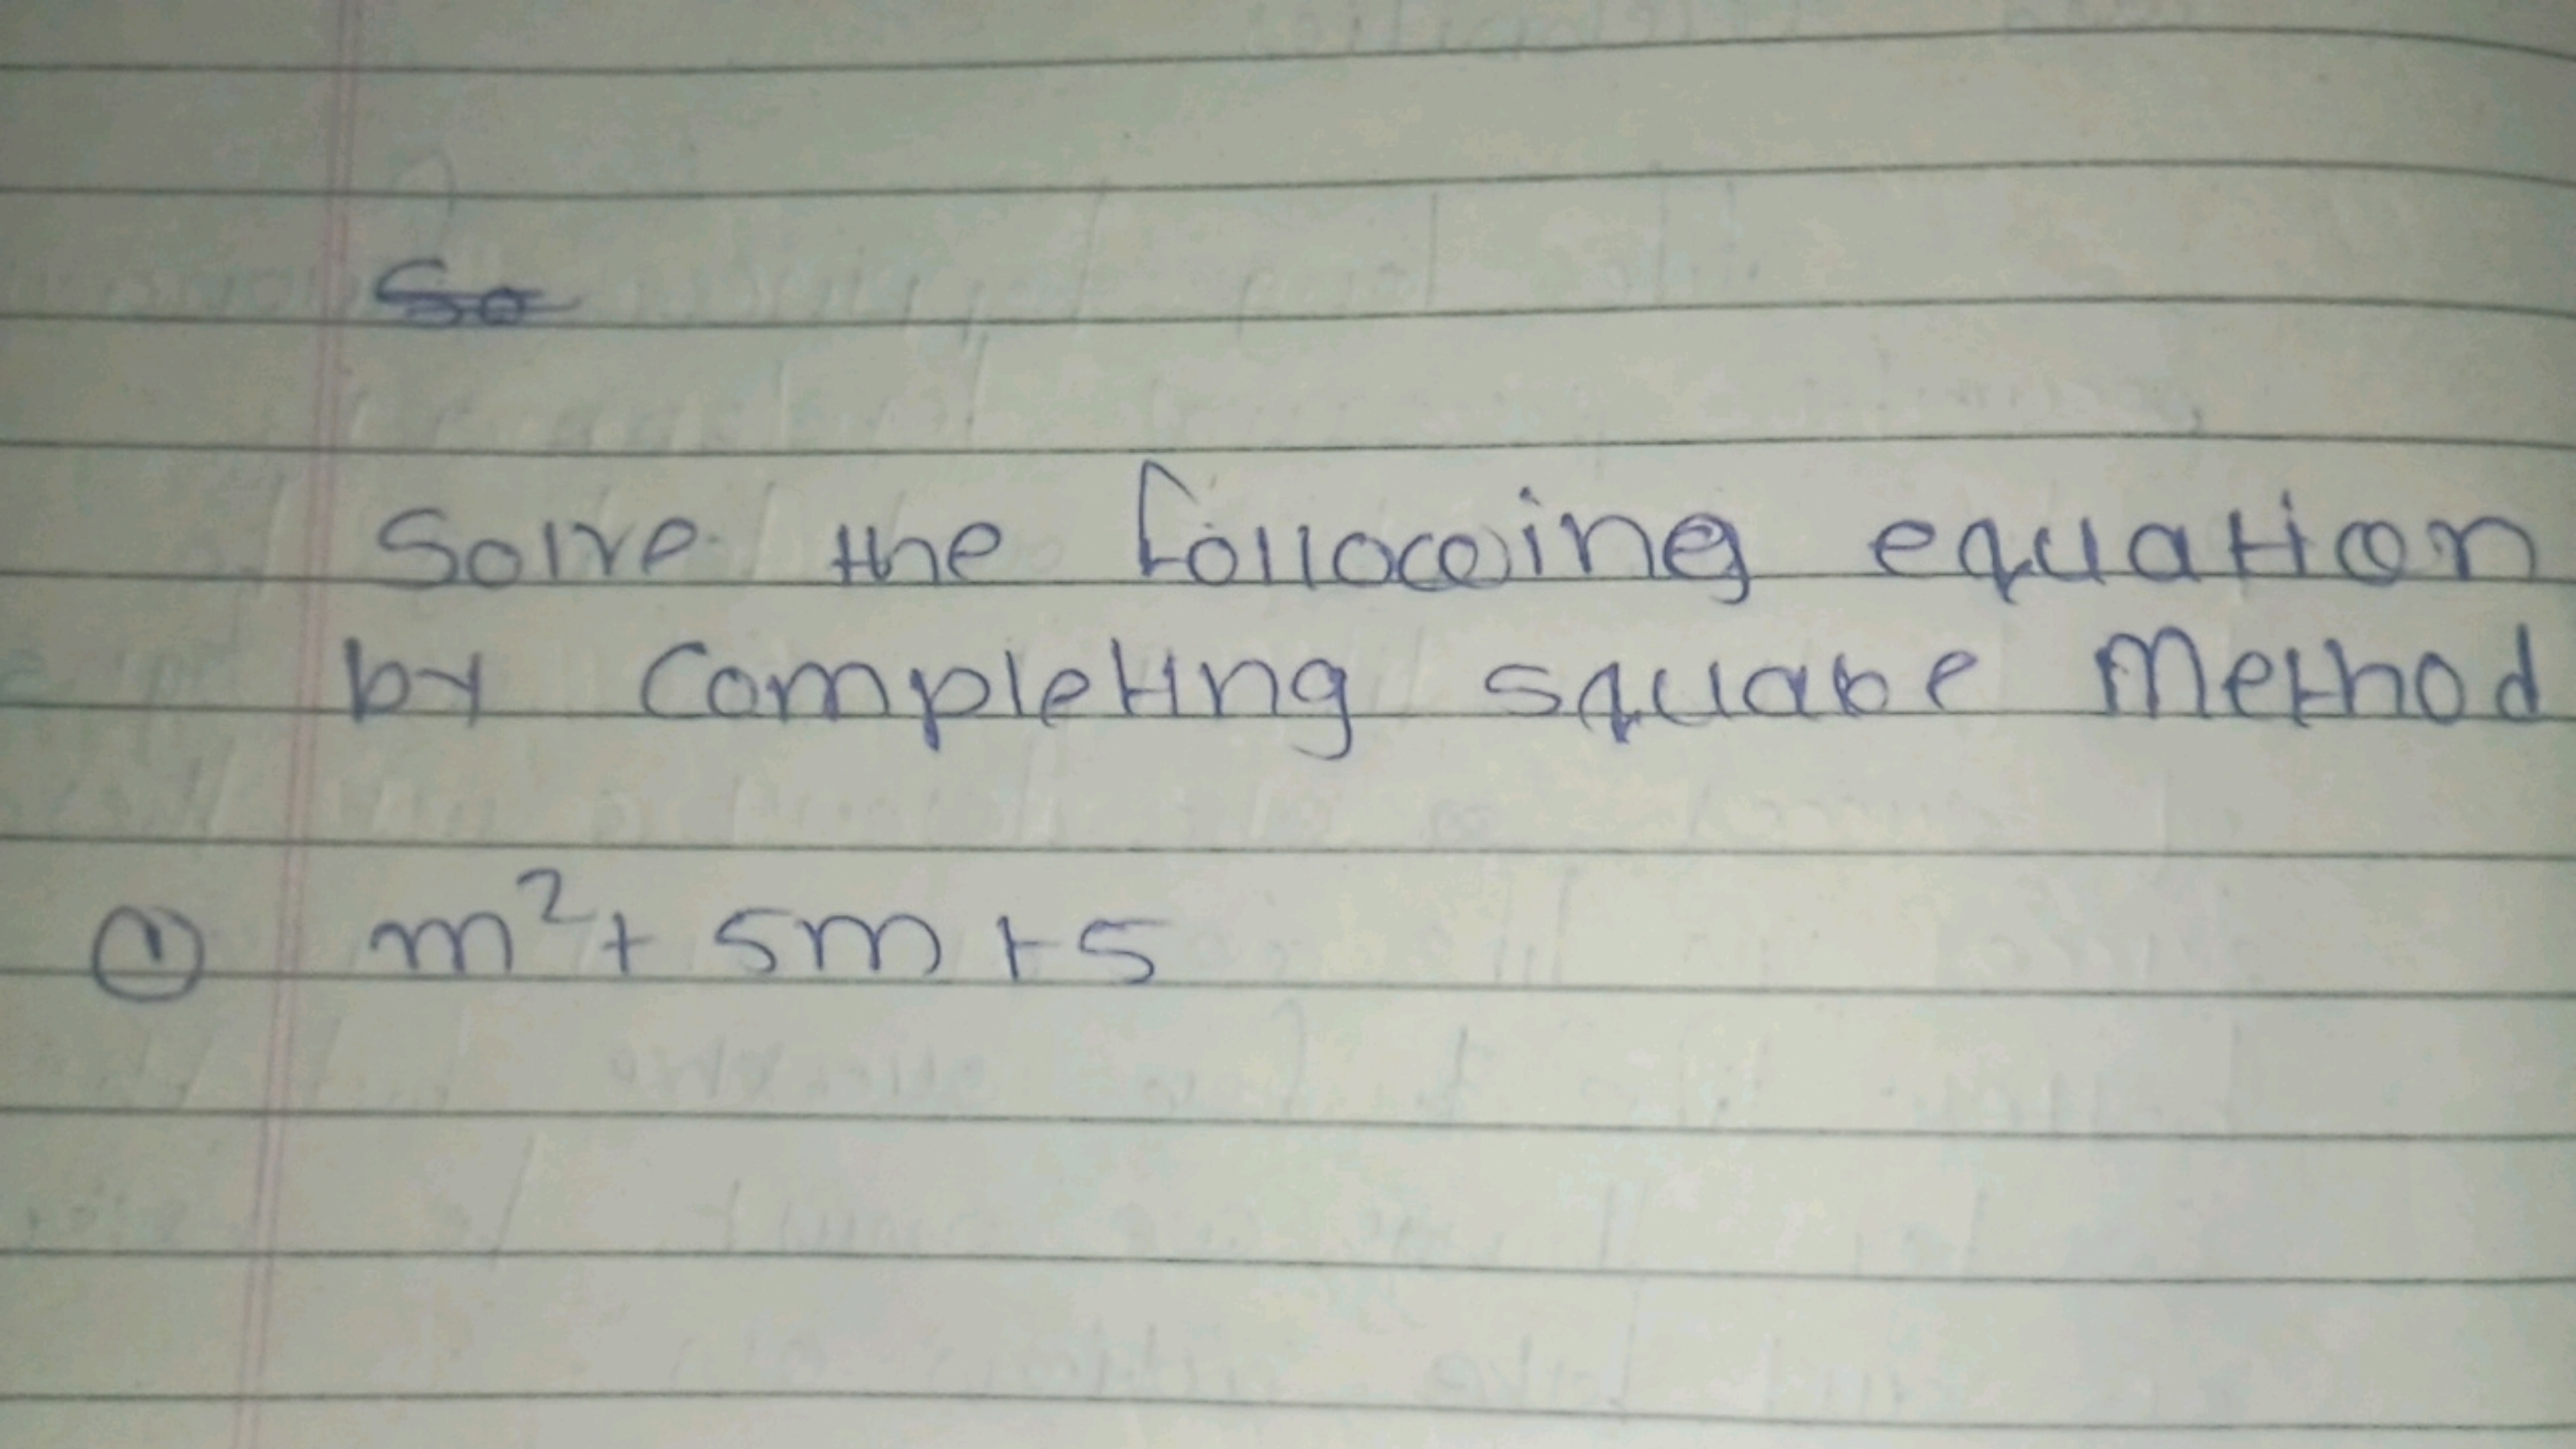 So
Solve the following equation
by Completing square Method
① m² + 5m + 5